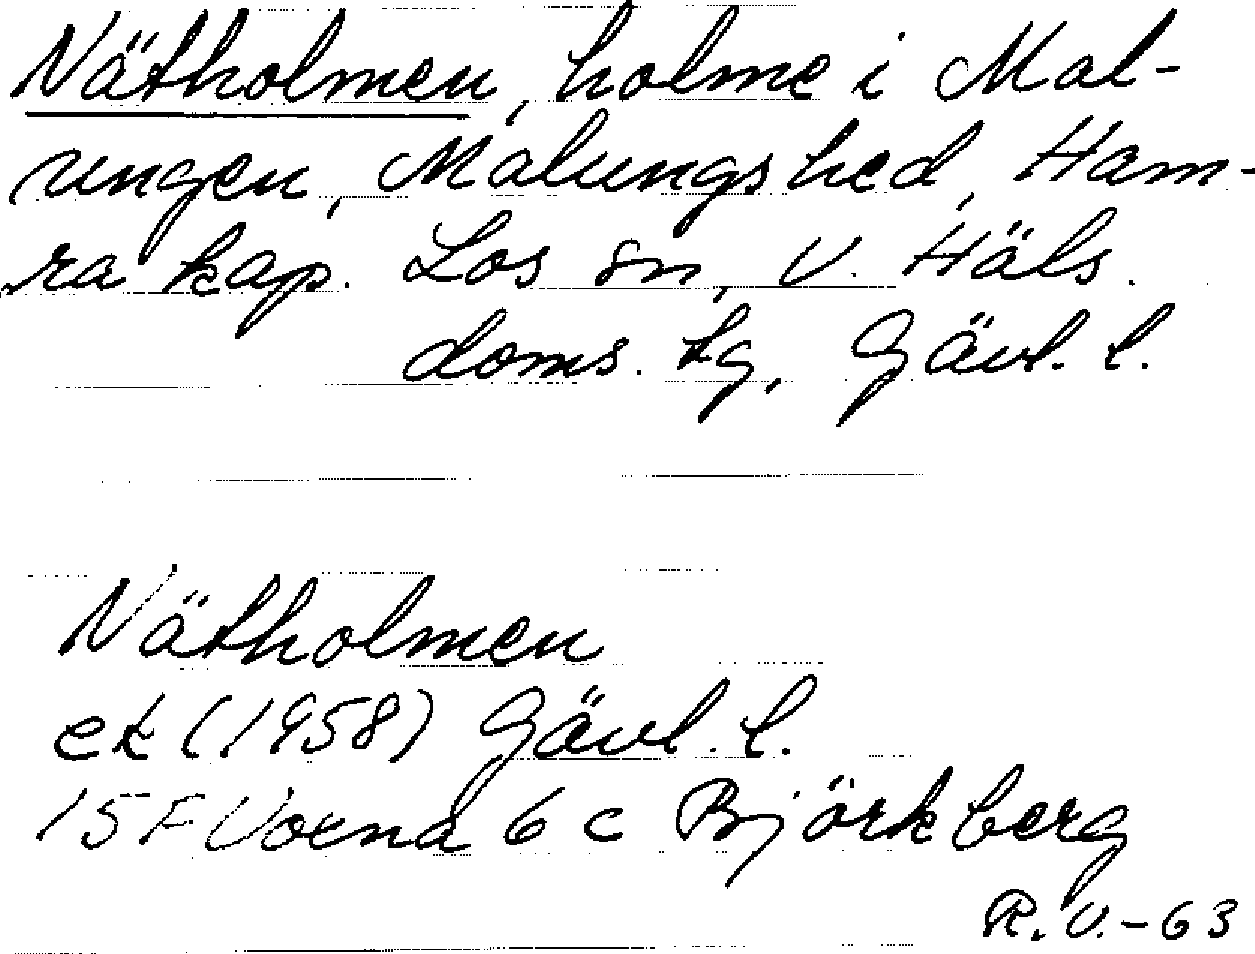 Nätholmen, holme i Mal-
ungen, Malungshed, Ham-
ra kap. Los sn, V. Häls.
doms. tg, Gävl. l.
Nätholmen
ek (1958) Gävl. l.
15 F Voxna 6 c Björkberg
R. V. - 63